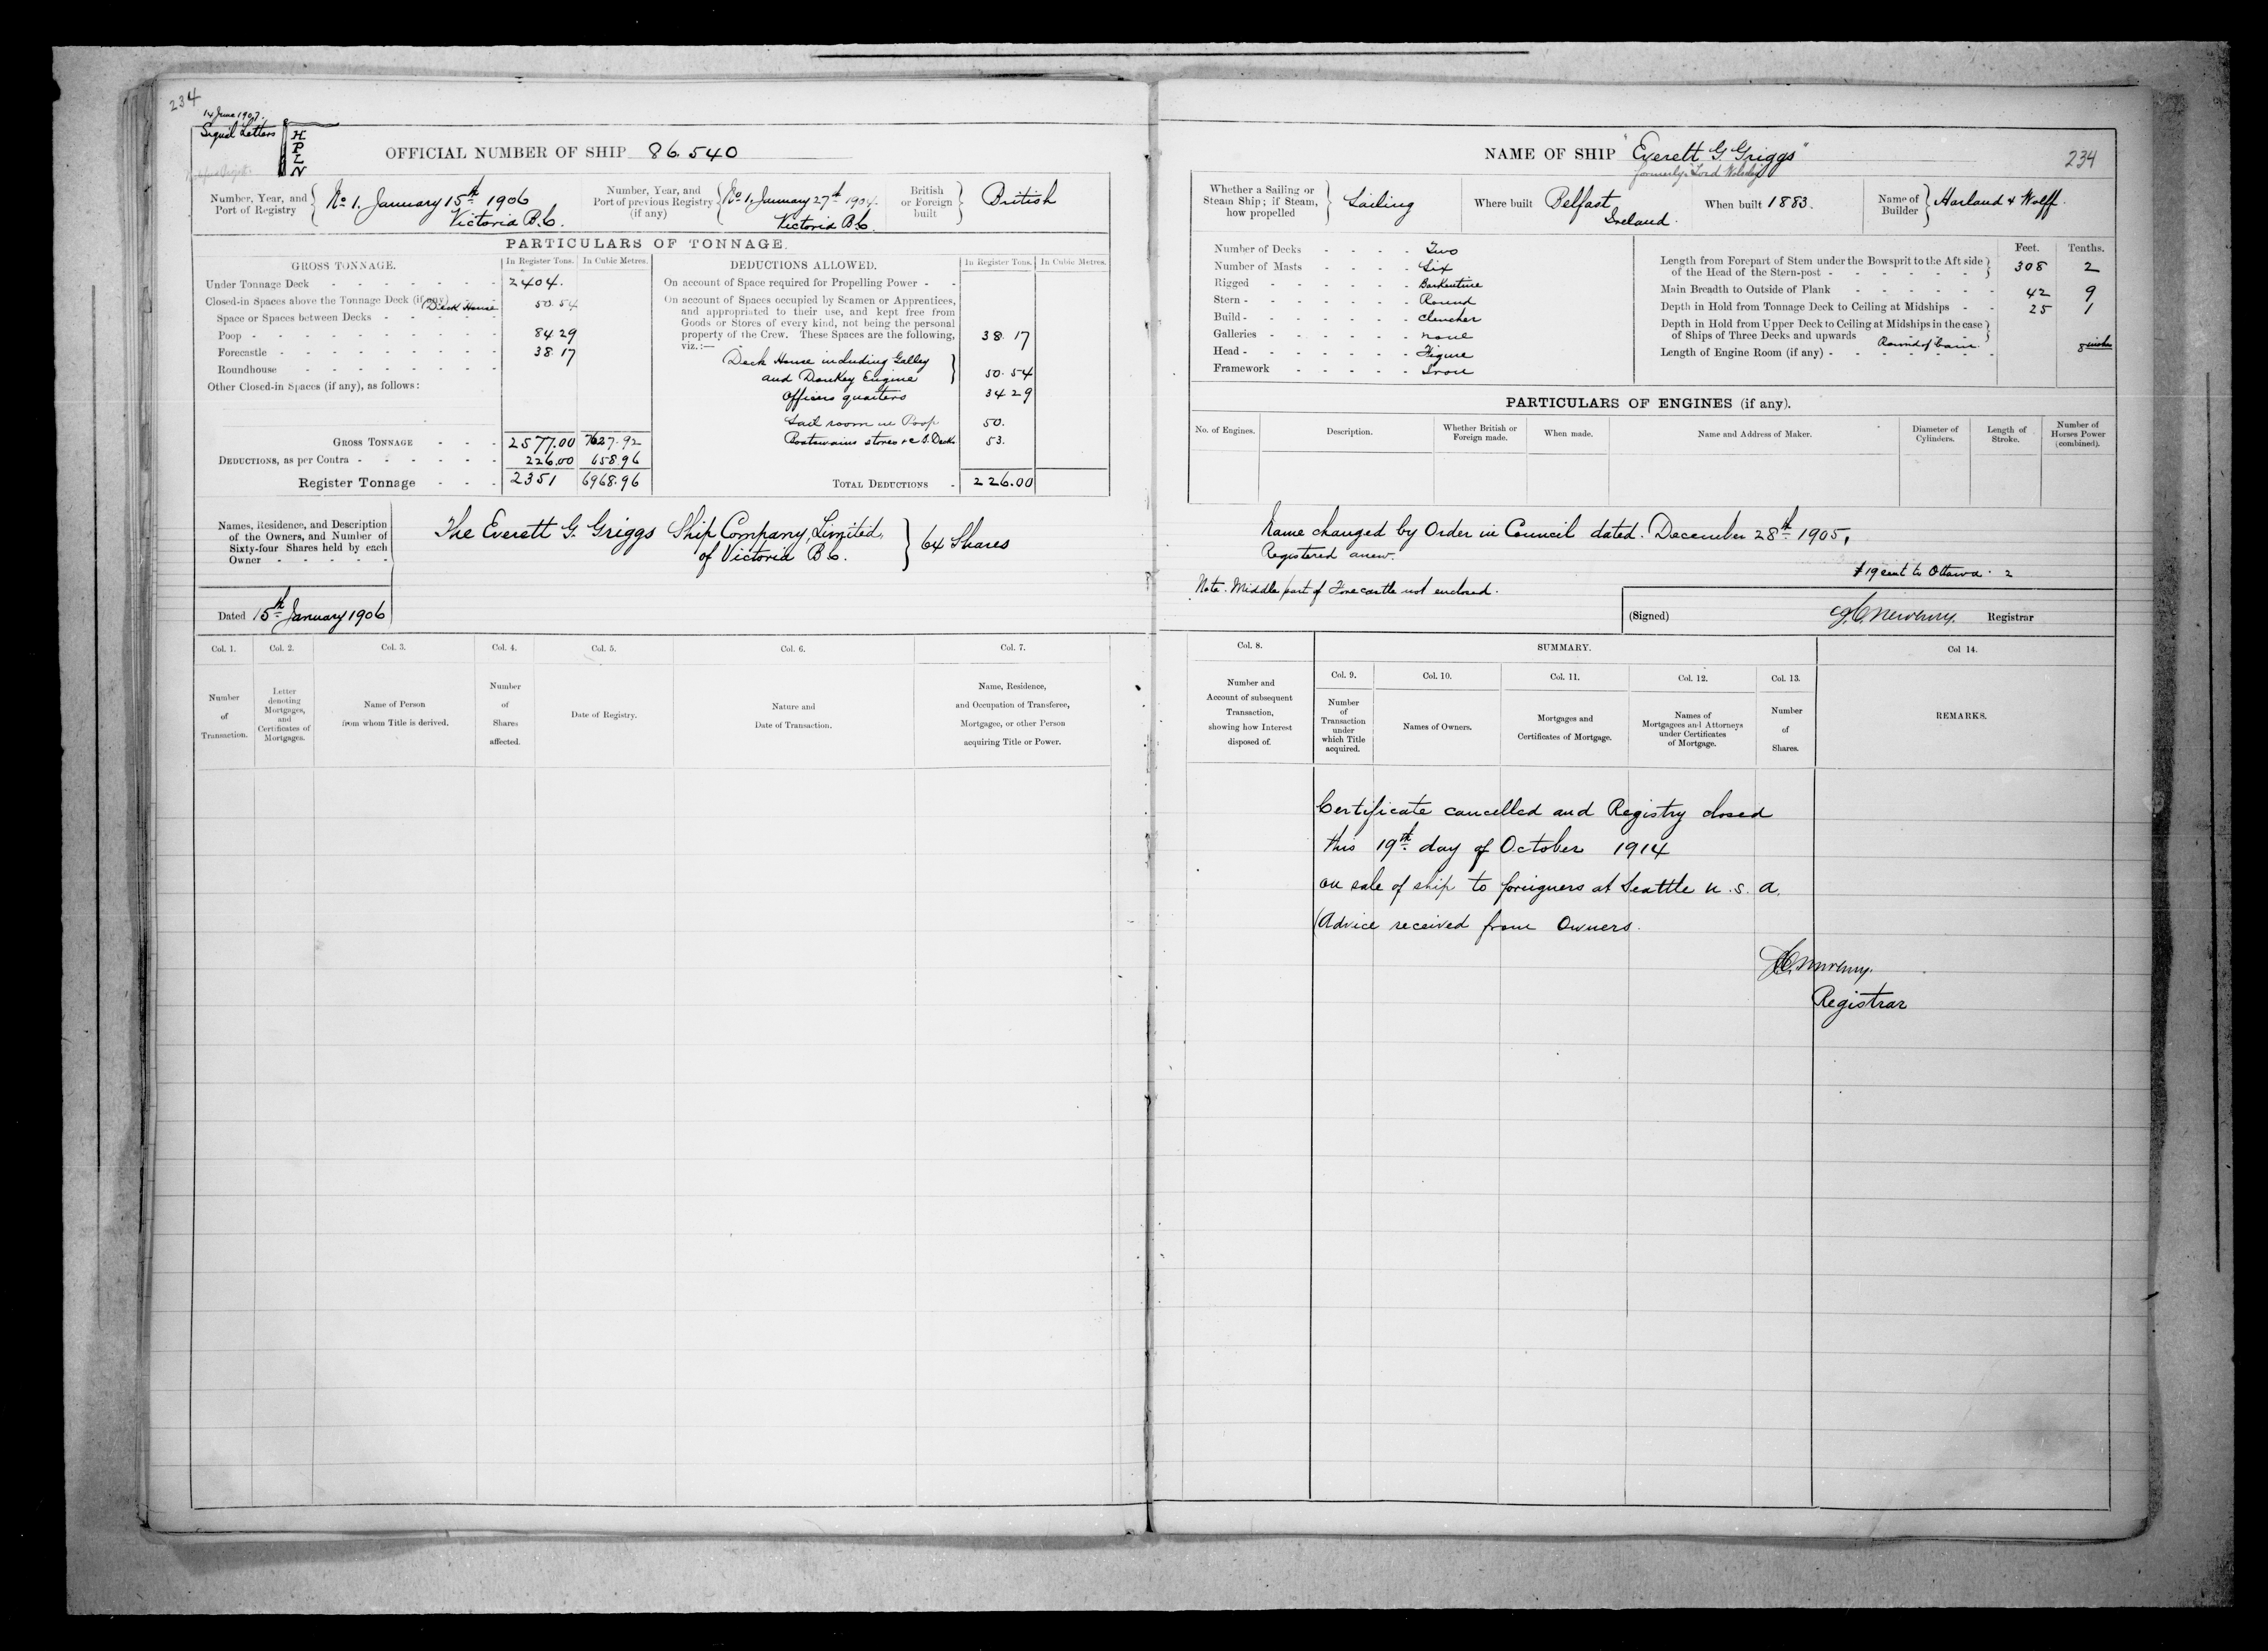 234
14 June 1907.
Signal Letters
H
P
L
N
OFFICIAL NUMBER OF SHIP 86.540
Number, Year, and Port of Registry
No 1. January 15th 1906
Victoria B.C.
Number, Year, and Port of previous Registry (if any)
No 1, January 27th 1904.
Victoria B.C.
British or Foreign built
British
PARTICULARS OF TONNAGE.
GROSS TONNAGE. In Register Tons. In Cubic Metres.
Under Tonnage Deck - 2404.
Closed-in Spaces above the Tonnage Deck (if any) Deck House 50.54
Space or Spaces between Decks -
Poop - 84.29
Forecastle - 38.17
Roundhouse -
Other Closed-in Spaces (if any), as follows:
GROSS TONNAGE - 2577.00 7627.92
DEDUCTIONS, as per Contra - 226.00 658.96
Register Tonnage - 2351 6968.96
DEDUCTIONS ALLOWED. In Register Tons. In Cubic Metres.
On account of Space required for Propelling Power -
On account of Spaces occupied by Seamen or Apprentices,
and appropriated to their use, and kept free from
Goods or Stores of every kind, not being the personal
property of the Crew. These Spaces are the following, 38.17
viz.:—
Deck House including Galley
and Donkey Engine 50.54
Officers quarters 34 29
Sail room in Poop 50.
Boatswains stores &c B. Deck 53.
TOTAL DEDUCTIONS - 226.00
Names, Residence, and Description
of the Owners, and Number of
Sixty-four Shares held by each
Owner -
The Everett G. Griggs Ship Company, Limited,
of Victoria B.C.
64 Shares
Dated 15th January 1906
Col. 1. Col. 2. Col. 3. Col. 4. Col. 5. Col. 6. Col. 7.
Number of Transaction.
Letter denoting Mortgages, and Certificates of Mortgages.
Name of Person from whom Title is derived.
Number of Shares affected.
Date of Registry.
Nature and Date of Transaction.
Name, Residence, and Occupation of Transferee, Mortgagee, or other Person acquiring Title or Power.
NAME OF SHIP "Everett G. Griggs"
formerly "Lord Wolseley"
234
Whether a Sailing or Steam Ship; if Steam, how propelled
Sailing
Where built Belfast, Ireland.
When built 1883.
Name of Builder Harland & Wolff.
Number of Decks - Two
Number of Masts - Six
Rigged - Barkentine
Stern - Round
Build - Clencher
Galleries - none
Head - Figure
Framework - Iron
Feet. Tenths.
Length from Forepart of Stem under the Bowsprit to the Aft side
of the Head of the Stern-post - 308 2
Main Breadth to Outside of Plank - 42 9
Depth in Hold from Tonnage Deck to Ceiling at Midships - 25 1
Depth in Hold from Upper Deck to Ceiling at Midships in the case
of Ships of Three Decks and upwards -
Round of beam. 8 inches
Length of Engine Room (if any) -
PARTICULARS OF ENGINES (if any).
No. of Engines.
Description.
Whether British or Foreign made.
When made.
Name and Address of Maker.
Diameter of Cylinders.
Length of Stroke.
Number of Horses Power (combined).
Name changed by Order in Council dated. December 28th 1905,
Registered anew.
19 sent to Ottawa. 2
Note. Middle part of Forecastle not enclosed.
(Signed) Registrar
Col. 8. SUMMARY. Col 14.
Col. 9. Col. 10. Col. 11. Col. 12. Col. 13.
Number and Account of subsequent Transaction, showing how Interest disposed of.
Number of Transaction under which Title acquired.
Names of Owners.
Mortgages and Certificates of Mortgage.
Names of Mortgagees and Attorneys under Certificates of Mortgage.
Number of Shares.
REMARKS.
Certificate cancelled and Registry closed
this 19th day of October 1914
on sale of ship to foreigners at Seattle U.S.A.
(Advice received from Owners.
Registrar